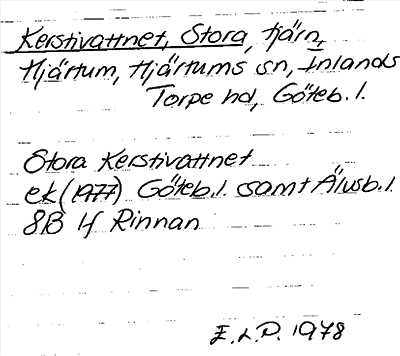 Kerstivattnet, Stora, tjärn,
Hjärtum, Hjärtums sn, Inlands
Torpe hd, Göteb. l.
Stora Kerstivattnet
ek (1977) Göteb. l. samt Älvsb. l.
8B 4f Rinnan
E.L.P. 1978